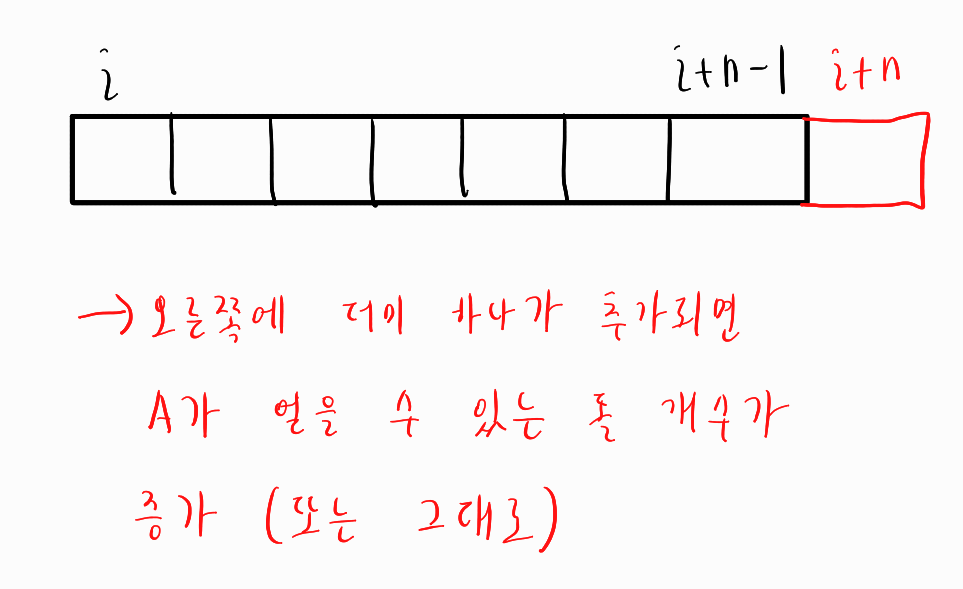 i i+n-1 i+n
→ 오른쪽에 더미 하나가 추가되면
A가 얻을 수 있는 돌 개수가
증가 (또는 그대로)